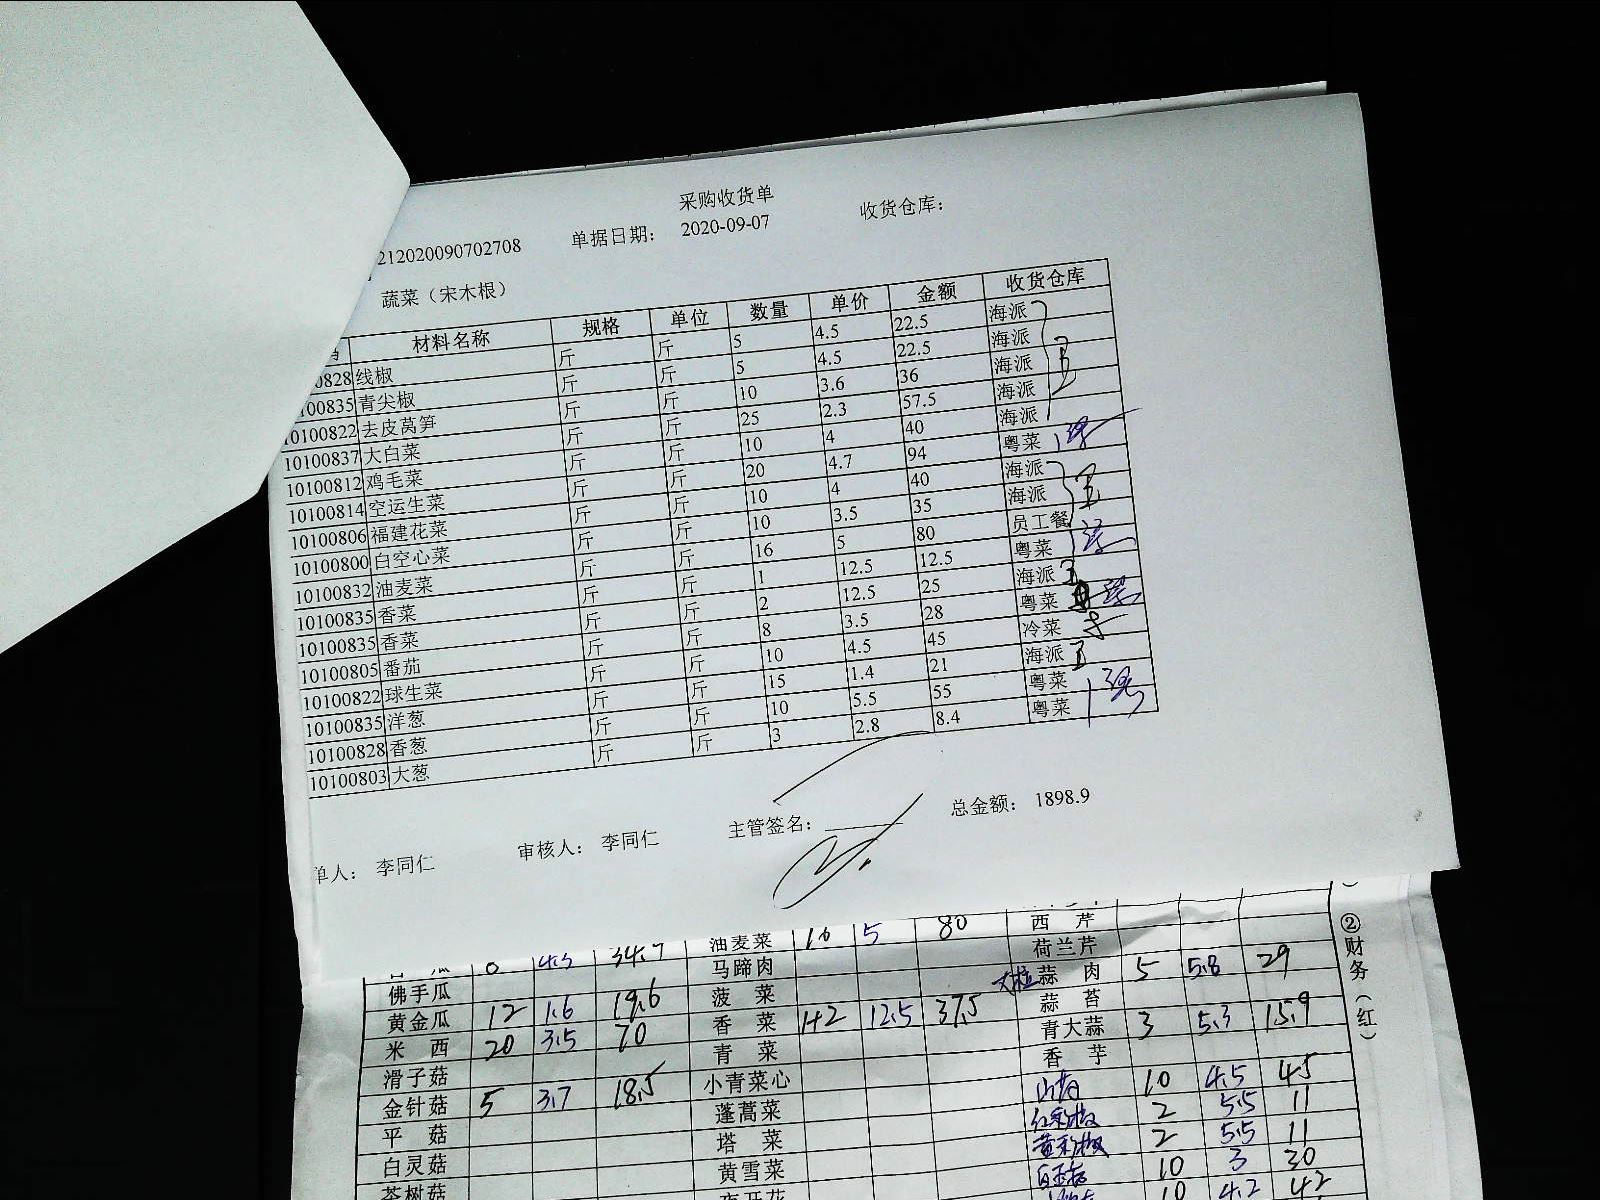 采购收货单
212020090702708 单据日期: 2020-09-07 收货仓库:
蔬菜（宋木根）
材料名称 规格 单位 数量 单价 金额 收货仓库
0828 线椒 斤 斤 5 4.5 22.5 海派
100835 青尖椒 斤 斤 5 4.5 22.5 海派
10100822 去皮莴笋 斤 斤 10 3.6 36 海派
10100837 大白菜 斤 斤 25 2.3 57.5 海派
10100812 鸡毛菜 斤 斤 10 4 40 海派
10100814 空运生菜 斤 斤 20 4.7 94 粤菜
10100806 福建花菜 斤 斤 10 4 40 海派
10100800 白空心菜 斤 斤 10 3.5 35 海派
10100832 油麦菜 斤 斤 16 5 80 员工餐
10100835 香菜 斤 斤 1 12.5 12.5 粤菜
10100835 香菜 斤 斤 2 12.5 25 海派
10100805 番茄 斤 斤 8 3.5 28 粤菜
10100822 球生菜 斤 斤 10 4.5 45 冷菜
10100835 洋葱 斤 斤 15 1.4 21 海派
10100828 香葱 斤 斤 10 5.5 55 粤菜
10100803 大葱 斤 斤 3 2.8 8.4 粤菜
单人: 李同仁 审核人: 李同仁 主管签名: 总金额: 1898.9
油麦菜 16 5 80 西芹
瓜 4.3 马蹄肉 荷兰芹
佛手瓜 菠菜 蒜肉 5 5.8 29
黄金瓜 12 1.6 19.6 香菜 1+2 12.5 37.5 蒜苔
米西 20 3.5 70 青菜 青大蒜 3 5.3 15.9
滑子菇 小青菜心 香芋
金针菇 5 3.7 18.5 蓬蒿菜 10 4.5 45
平菇 塔菜 红彩椒 2 5.5 11
白灵菇 黄雪菜 黄彩椒 2 5.5 11
茶树菇 10 3 30
10 4.2 42
②财务（红）